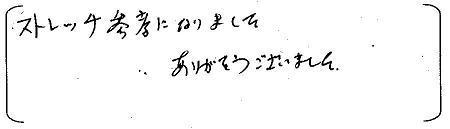 ストレッチ参考になりました
ありがとうございました。